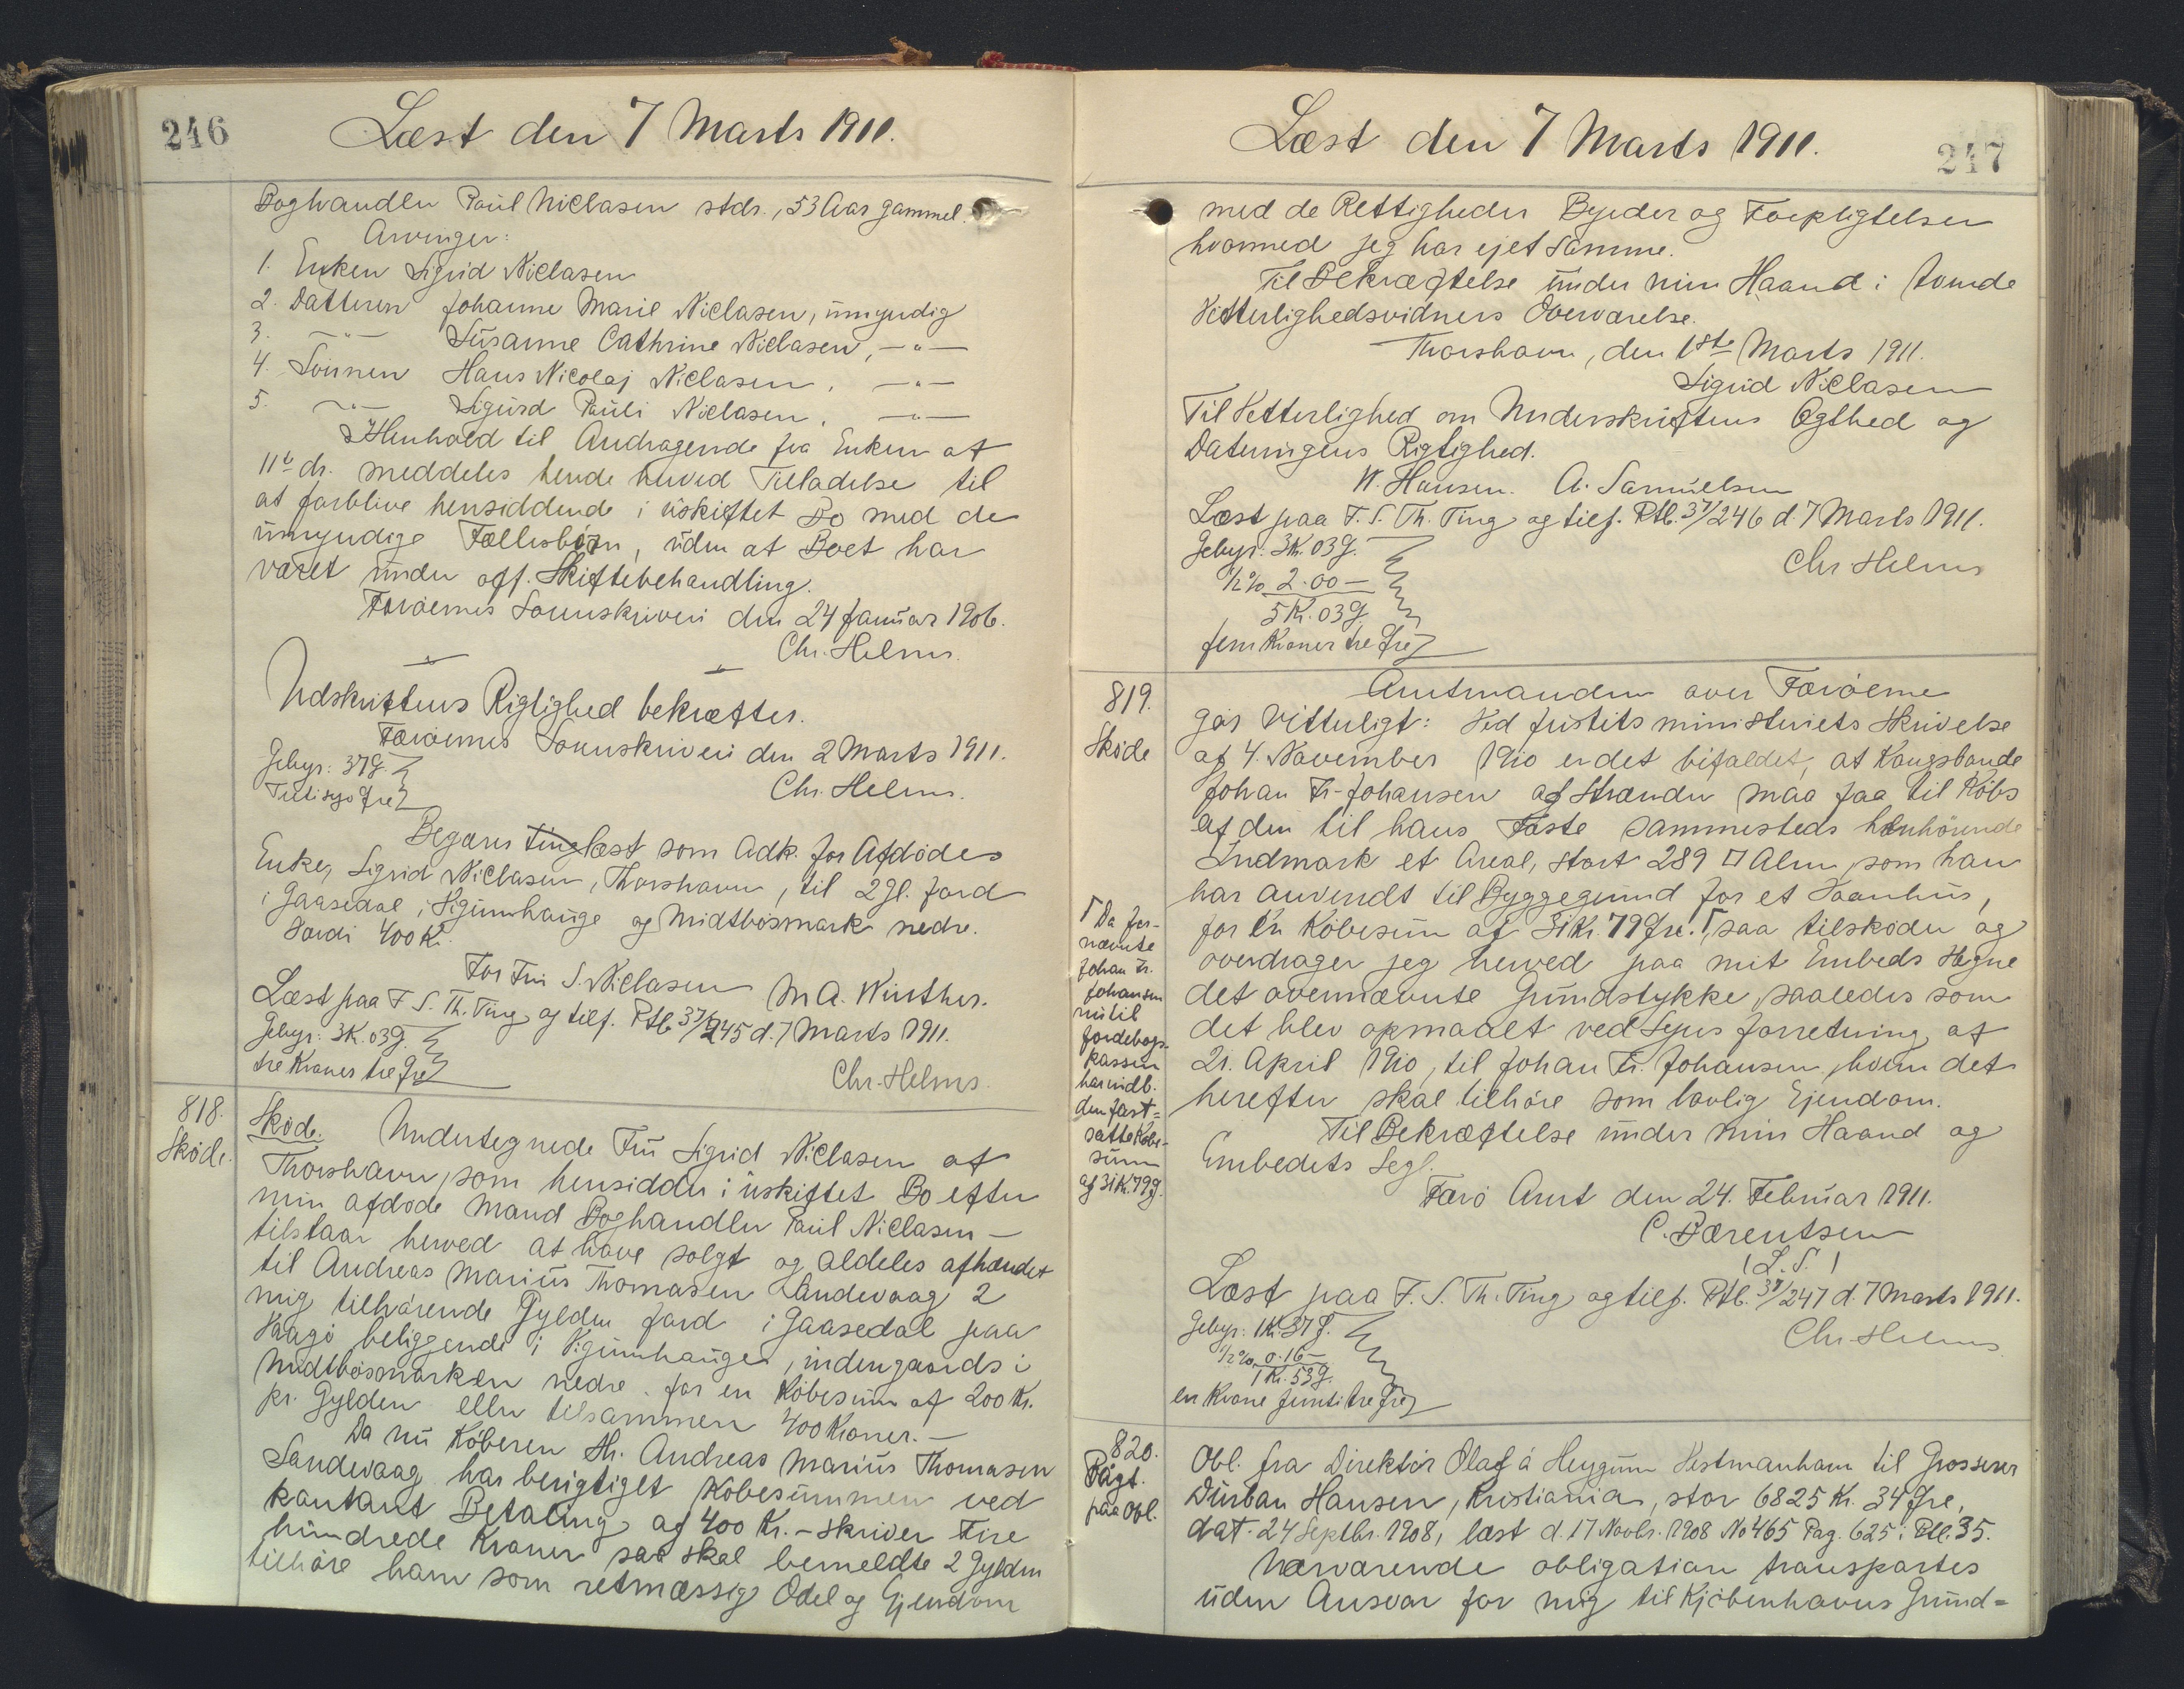 246
Læst den 7 Marts 1911.
Boghandler Paul Niclasen stdr., 53 Aar gammel.
Arvinger:
1. Enken Sigrid Niclasen
2. Datteren Johanne Marie Niclasen, umyndig
3. —"— Susanne Cathrine Niclasen, —"—
4. Sönnen Hans Nicolaj Niclasen, —"—
5. —"— Sigurd Pauli Niclasen, —"—
I Henhold til Andragende fra Enken af
11te ds. meddeles hende herved Tilladelse til
at forblive hensiddende i uskiftet Bo med de
umyndige Fællesbörn, uden at Boet har
været under off. Skiftebehandling.
Færöernes Sorenskriveri den 24 Januar 1906.
Chr. Helms.
Udskriftens Rigtighed bekræftes.
Færöernes Sorenskriveri den 2 Marts 1911.
Gebyr: 37 Ø.
Chr. Helms.
Tretisyv Øre
Begæres tinglæst som Adk. for Afdödes
Enke, Sigrid Niclasen, Thorshavn, til 2 Gl. Jord
i Gaasedal, i Vigumhauge og Midtbösmark nedre.
Værdi 400 Kr.
For Fru S. Niclasen M A. Winther.
Læst paa F. S. Th. Ting og tilf. Ptb 37/245 d. 7 Marts 1911.
Gebyr: 3 K. 03 Ø.
tre Kroner tre Øre
Chr. Helms.
818.
Sköde.
Sköde. Undertegnede Fru Sigrid Niclasen af
Thorshavn, som hensidder i uskiftet Bo efter
min afdöde Mand Boghandler Paul Niclasen —
tilstaar herved at have solgt og aldeles afhændet
til Andreas Marius Thomasen Sandevaag 2
mig tilhörende Gylden Jord i Gaasedal paa
Vaagö beliggende i Vigumhauge, indengaards i
Midtbösmarken nedre. for en Köbesum af 200 Kr.
pr. Gylden eller tilsammen 400 Kroner. —
Da nu Köberen Hr. Andreas Marius Thomasen
Sandevaag har berigtiget Köbesummen ved
kontant Betaling af 400 Kr. – skriver Fire
hundrede Kroner saa skal bemeldte 2 Gylden
tilhöre ham som retmæssig Odel og Ejendom
Læst den 7 Marts 1911.
247
med de Rettigheder Byrder og Forpligtelser
hvormed jeg har ejet samme.
Til Bekræftelse under min Haand i tvende
Vitterlighedsvidners Overværelse.
Thorshavn, den 1ste Marts 1911.
Sigrid Niclasen
Til Vitterlighed om Underskriftens Ægthed og
Dateringens Rigtighed.
W. Hansen. A. Samuelsen
Læst paa F. S. Th. Ting og tilf. Ptb. 37/246 d. 7 Marts 1911.
Gebyr: 3 K. 03 Ø.
Chr Helms
1/2 % 2.00 —
5 Kr. 03 Ø.
fem Kroner tre Øre
819.
Sköde
Amtmanden over Færöerne
gör vitterligt: Ved Justitsministeriets Skrivelse
af 4. November 1910 er det bifaldet, at Kongsbonde
Johan Fr. Johansen af Strænder maa faa til Köbs
af den til hans Fæste sammesteds henhörende
Indmark et Areal, stort 289 □ Alen, som han
har anvendt til Byggegrund for et Vaanhus,
for en Köbesum af 31 Kr. 79 Øre. ⌈, saa tilsköder og
overdrager jeg herved paa mit Embeds Vegne
det ovennævnte Grundstykke, saaledes som
det blev opmaalt ved Syns forretning af
21. April 1910, til Johan Fr. Johansen, hvem det
herefter skal tilhöre som lovlig Ejendom.
⌈ Da for-
nævnte
Johan Fr.
Johansen
nu til
Jordebogs-
kassen
har indb.
den fast-
satte Købe-
sum
af 31 K. 79 Ø.
Til Bekræftelse under min Haand og
Embedets Segl.
Færö Amt den 24. Februar 1911.
C. Bærentsen
(L. S.)
Læst paa F. S. Th. Ting og tilf. Ptb. 37/247 d. 7 Marts 1911.
Gebyr: 1 Kr. 37 Ø.
Chr Helms
1/2 % 0.16 —
1 Kr. 53 Ø.
en Krone femti tre Øre
820.
Paagt.
paa Obl.
Obl. fra Direktör Olaf á Heygum Vestmanhavn til Grosserer
Durban Hansen, Kristiania, stor 6825 Kr. 34 Øre,
dat. 24 Septbr. 1908, læst d. 17 Novbr. 1908 No 465 Pag. 625 i Ptl. 35.
Nærværende obligation transportes
uden Ansvar for mig til Kjöbenhavns Grund-